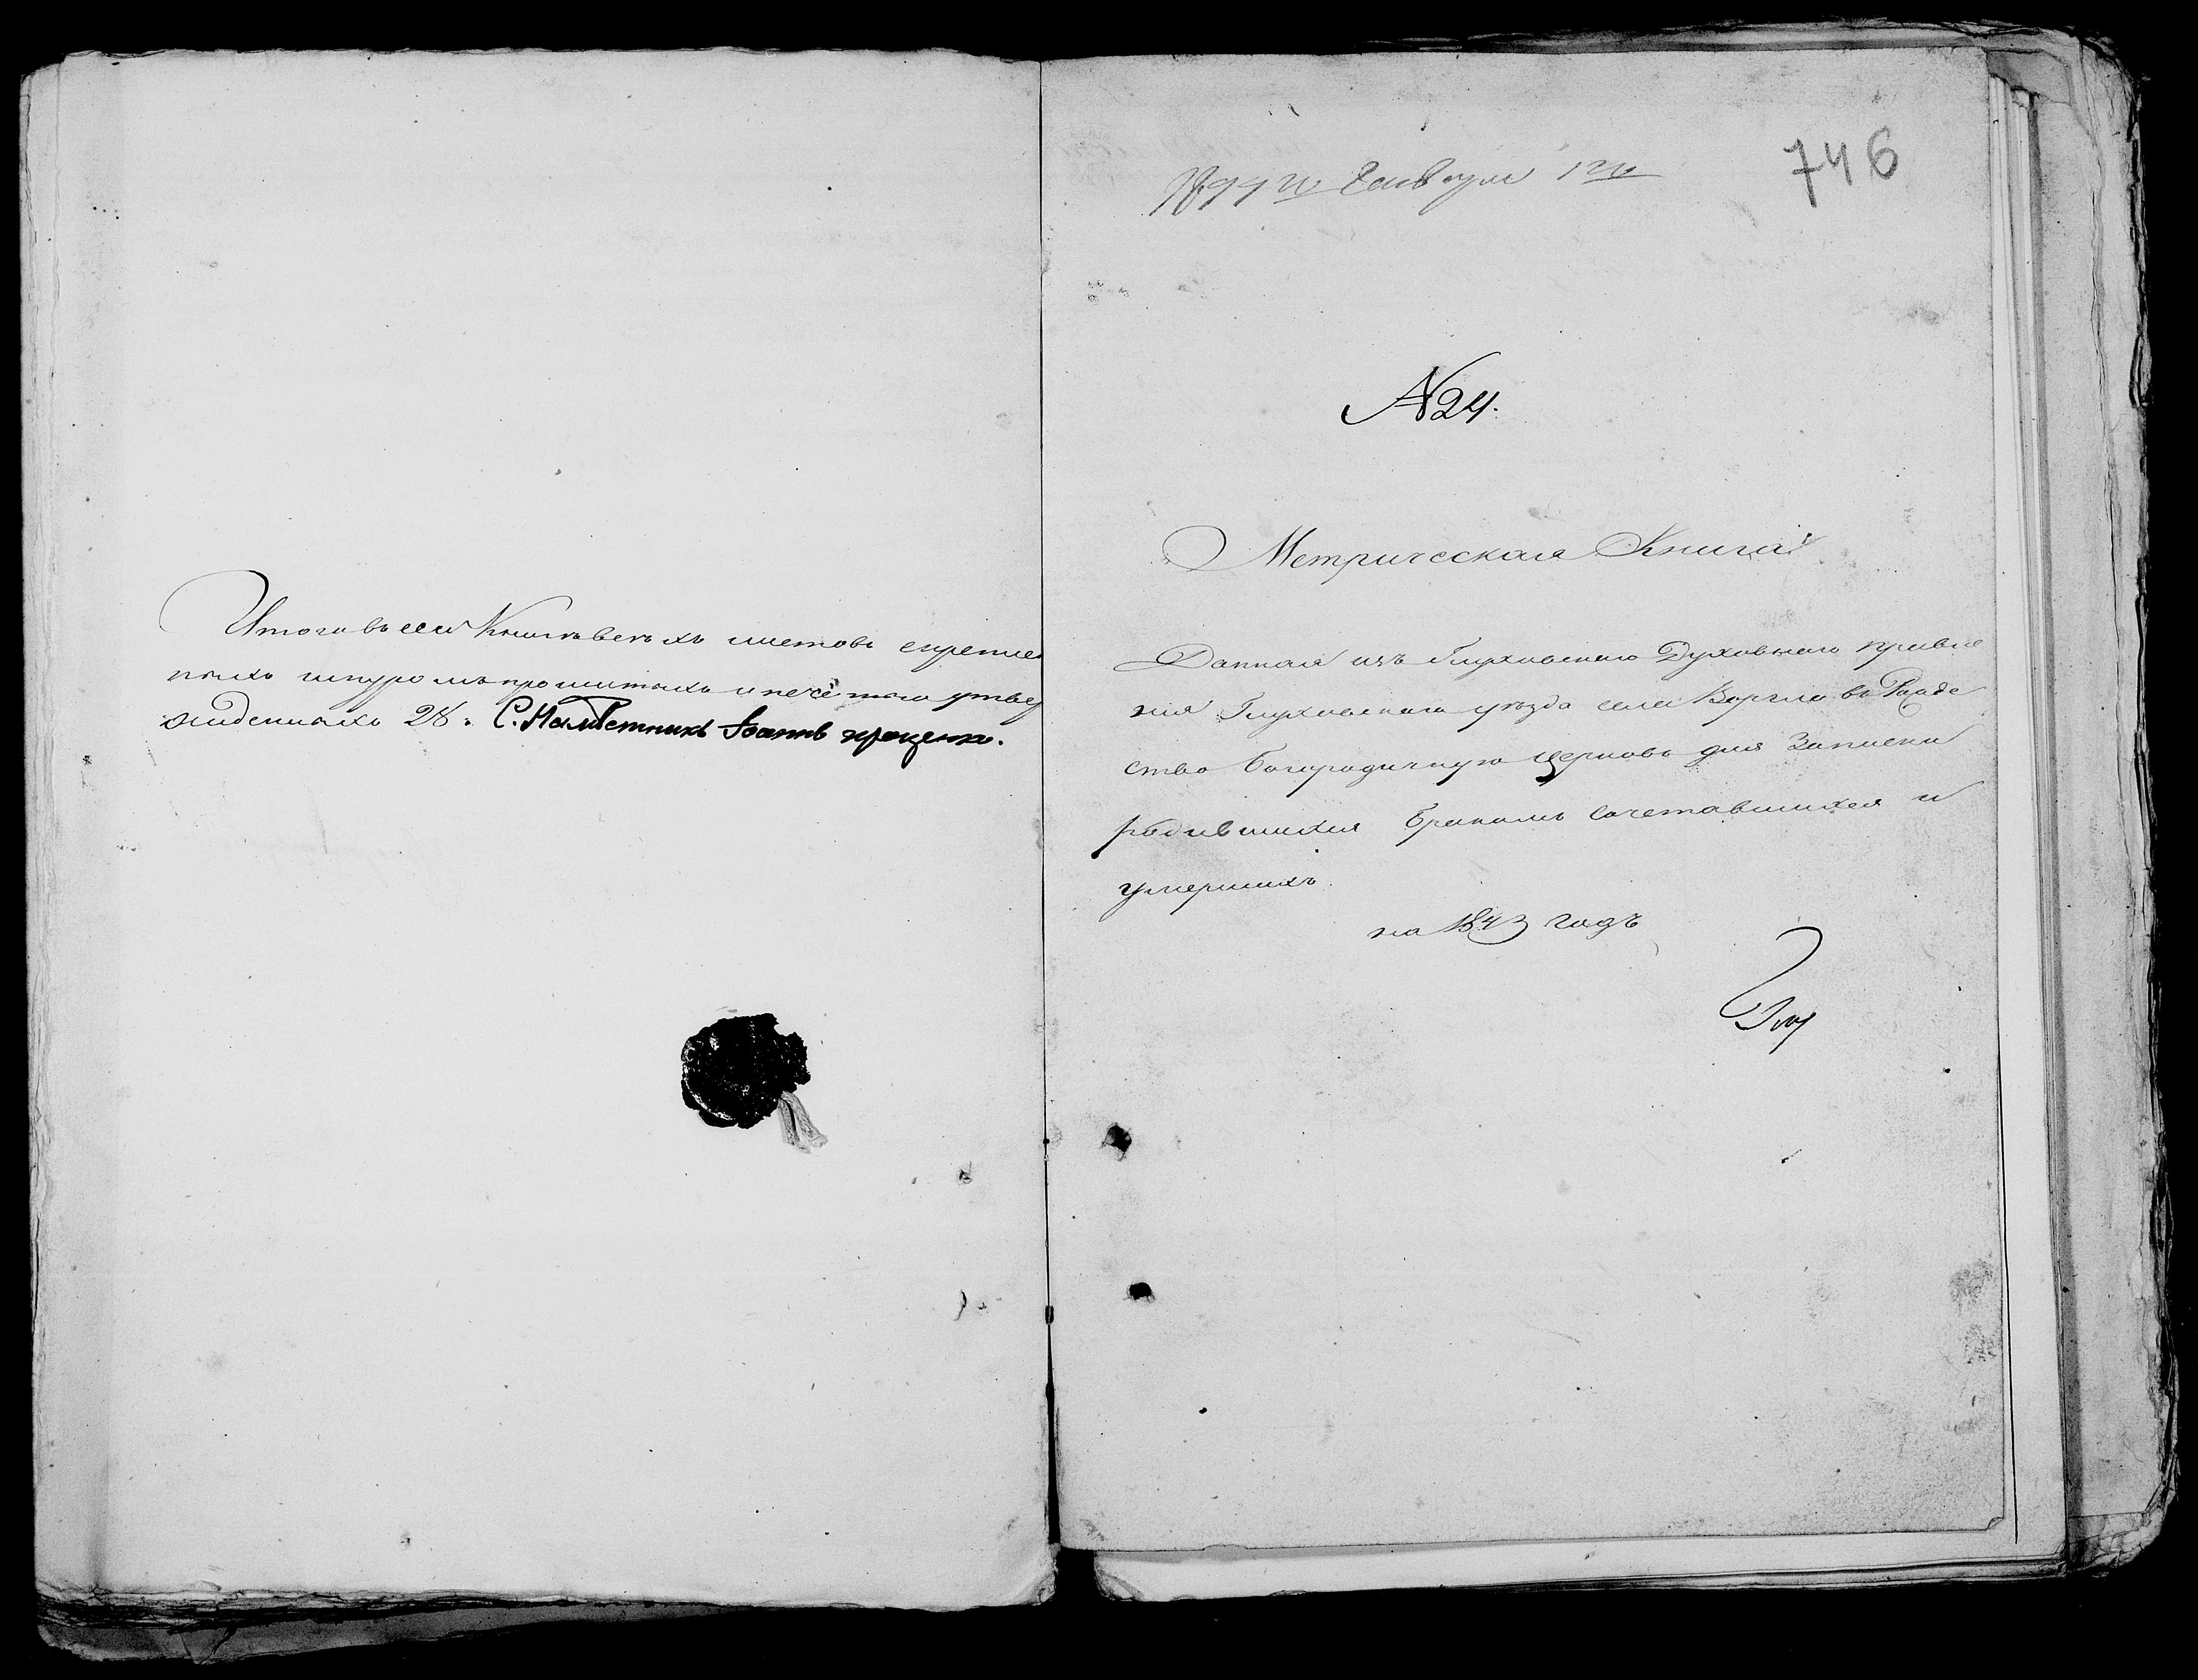 Итого въ сей Книгѣ всѣхъ листовъ скрѣплен
ныхъ шнуромъ прошитыхъ и печетю утвер
жденныхъ 28. С. Намѣстникъ Іоаннъ проценко.
Генваря 1го
746
№24.
Метрическая Книга
Данная изъ Глуховскаго Духовнаго правле
нія Глуховскаго уѣзда села Воргла въ Рожде
ство Богородичную церковь для Записки
родившихся бракомъ сочетавшихся и
умершихъ
на 1843 годъ